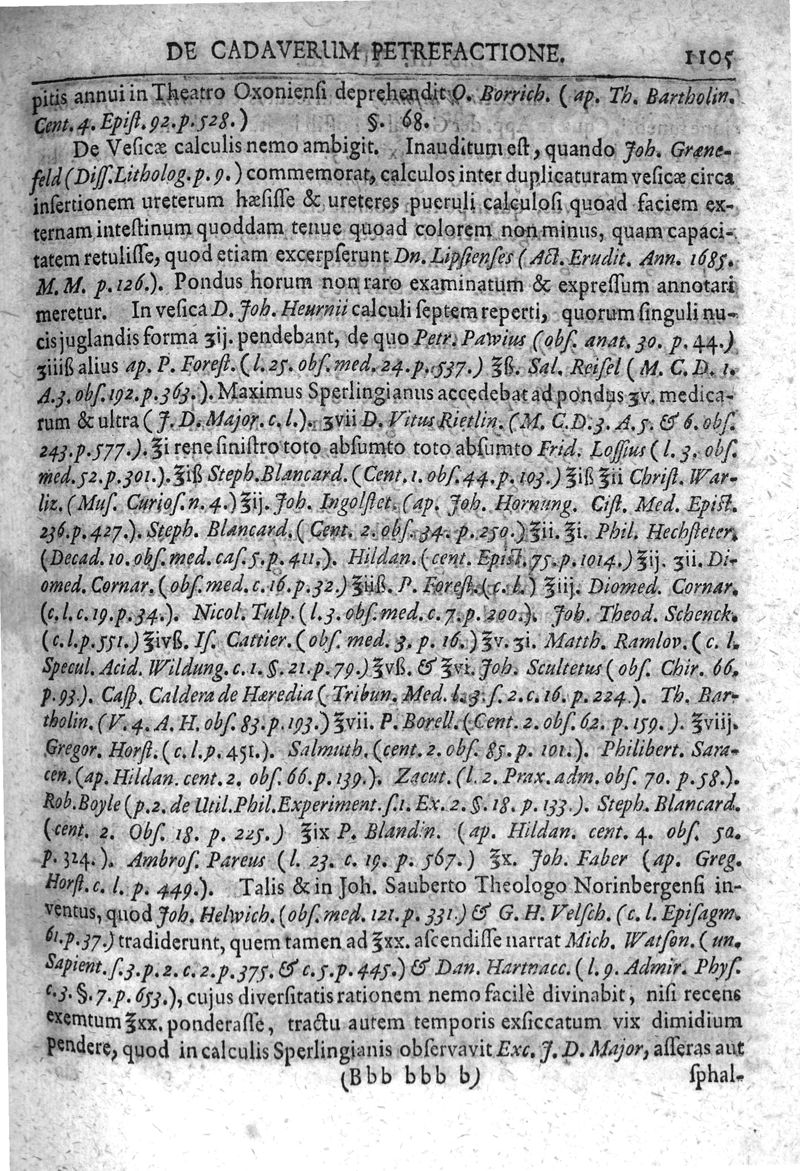 DE CADAVERUM PETREFACTIONE. 1105
pitis annui in Theatro Oxoniensi deprehendit O. Borrich. (ap. Th. Bartholin.
Cent. 4. Epist. 92. p. 528.) §. 68.
De Vesicæ calculis nemo ambigit. Inauditum est, quando Joh. Græne-
feld (Diss. Litholog. p. 9.) commemorat, calculos inter duplicaturam vesicæ circa
insertionem ureterum hæsisse & ureteres pueruli calculosi quoad faciem ex-
ternam intestinum quoddam tenue quoad colorem non minus, quam capaci-
tatem retulisse, quod etiam excerpserunt Dn. Lipsienses (Act. Erudit. Ann. 1685.
M. M. p. 126.). Pondus horum non raro examinatum & expressum annotari
meretur. In vesica D. Joh. Heurnii calculi septem reperti, quorum singuli nu-
cis juglandis forma ʒij. pendebant, de quo Petr. Pawius (obs. anat. 30. p. 44.)
ʒiiiß alius ap. P. Forest. (l. 25. obs. med. 24. p. 537.) ℥ß. Sal. Reisel (M. C. D. 1.
A. 3. obs. 192. p. 363.). Maximus Sperlingianus accedebat ad pondus ʒv. medica-
rum & ultra (J. D. Major. c. l.). ʒvii D. Vitus Rietlin. (M. C. D. 3. A. 5. & 6. obs.
243. p. 577.). ℥i rene sinistro toto absumto toto absumto Frid. Lossius (l. 3. obs.
med. 52. p. 301.). ℥iß Steph. Blancard. (Cent. 1. obs. 44. p. 103.) ℥iß ℥ii Christ. War-
liz. (Mus. Curios. n. 4.) ℥ij. Joh. Ingolstet. (ap. Joh. Hornung. Cist. Med. Epist.
236. p. 427.). Steph. Blancard. (Cent. 2. obs. 34. p. 250.) ℥ii. ʒi. Phil. Hechsteter.
(Decad. 10. obs. med. cas. 5. p. 411.). Hildan. (cent. Epist. 75. p. 1014.) ℥ij. ʒii. Di-
omed. Cornar. (obs. med. c. 16. p. 32.) ℥iiß. P. Forest. (c. l.) ℥iij. Diomed. Cornar.
(c. l. c. 19. p. 34.). Nicol. Tulp. (l. 3. obs. med. c. 7. p. 200.). Joh. Theod. Schenck.
(c. l. p. 551.) ℥ivß. Is. Cattier. (obs. med. 3. p. 16.) ℥v. ʒi. Matth. Ramlov. (c. l.
Specul. Acid. Wildung. c. 1. §. 21. p. 79.) ℥vß. & ℥vi. Joh. Scultetus (obs. Chir. 66.
p. 93.). Casp. Caldera de Hæredia (Tribun. Med. l. 3. s. 2. c. 16. p. 224.). Th. Bar-
tholin. (V. 4. A. H. obs. 83. p. 193.) ℥vii. P. Borell. (Cent. 2. obs. 62. p. 159.). ℥viij.
Gregor. Horst. (c. l. p. 451.). Salmuth. (cent. 2. obs. 85. p. 101.). Philibert. Sara-
cen. (ap. Hildan. cent. 2. obs. 66. p. 139.). Zacut. (l. 2. Prax. adm. obs. 70. p. 58.).
Rob. Boyle (p. 2. de Util. Phil. Experiment. s. 1. Ex. 2. §. 18. p. 133.). Steph. Blancard.
(cent. 2. Obs. 18. p. 225.) ℥ix P. Blandin. (ap. Hildan. cent. 4. obs. 50.
p. 324.). Ambros. Pareus (l. 23. c. 19. p. 567.) ℥x. Joh. Faber (ap. Greg.
Horst. c. l. p. 449.). Talis & in Joh. Sauberto Theologo Norinbergensi in-
ventus, quod Joh. Helwich. (obs. med. 121. p. 331.) & G. H. Velsch. (c. l. Episagm.
61. p. 37.) tradiderunt, quem tamen ad ℥xx. ascendisse narrat Mich. Watson. (un.
Sapient. s. 3. p. 2. c. 2. p. 375. & c. 5. p. 445.) & Dan. Hartnacc. (l. 9. Admir. Phys.
c. 3. §. 7. p. 653.), cujus diversitatis rationem nemo facilè divinabit, nisi recens
exemtum ℥xx. ponderasse, tractu autem temporis exsiccatum vix dimidium
pendere, quod in calculis Sperlingianis observavit Exc. J. D. Major, asseras aut
(Bbb bbb b) sphal-